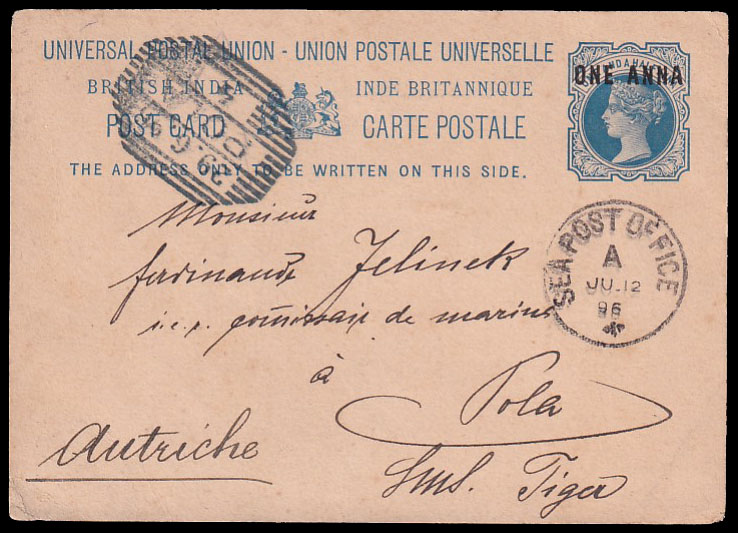 UNIVERSAL POSTAL UNION - UNION POSTALE UNIVERSELLE
BRITISH INDIA INDE BRITANNIQUE
POST CARD CARTE POSTALE
THE ADDRESS ONLY TO BE WRITTEN ON THIS SIDE.
ONE ANNA
SEA POST OFFICE
A
JU.12
96
Monsieur
Ferdinande Jelinek
i.e.r. comissair de marine
à
Pola
Autriche
SMS. Tiger